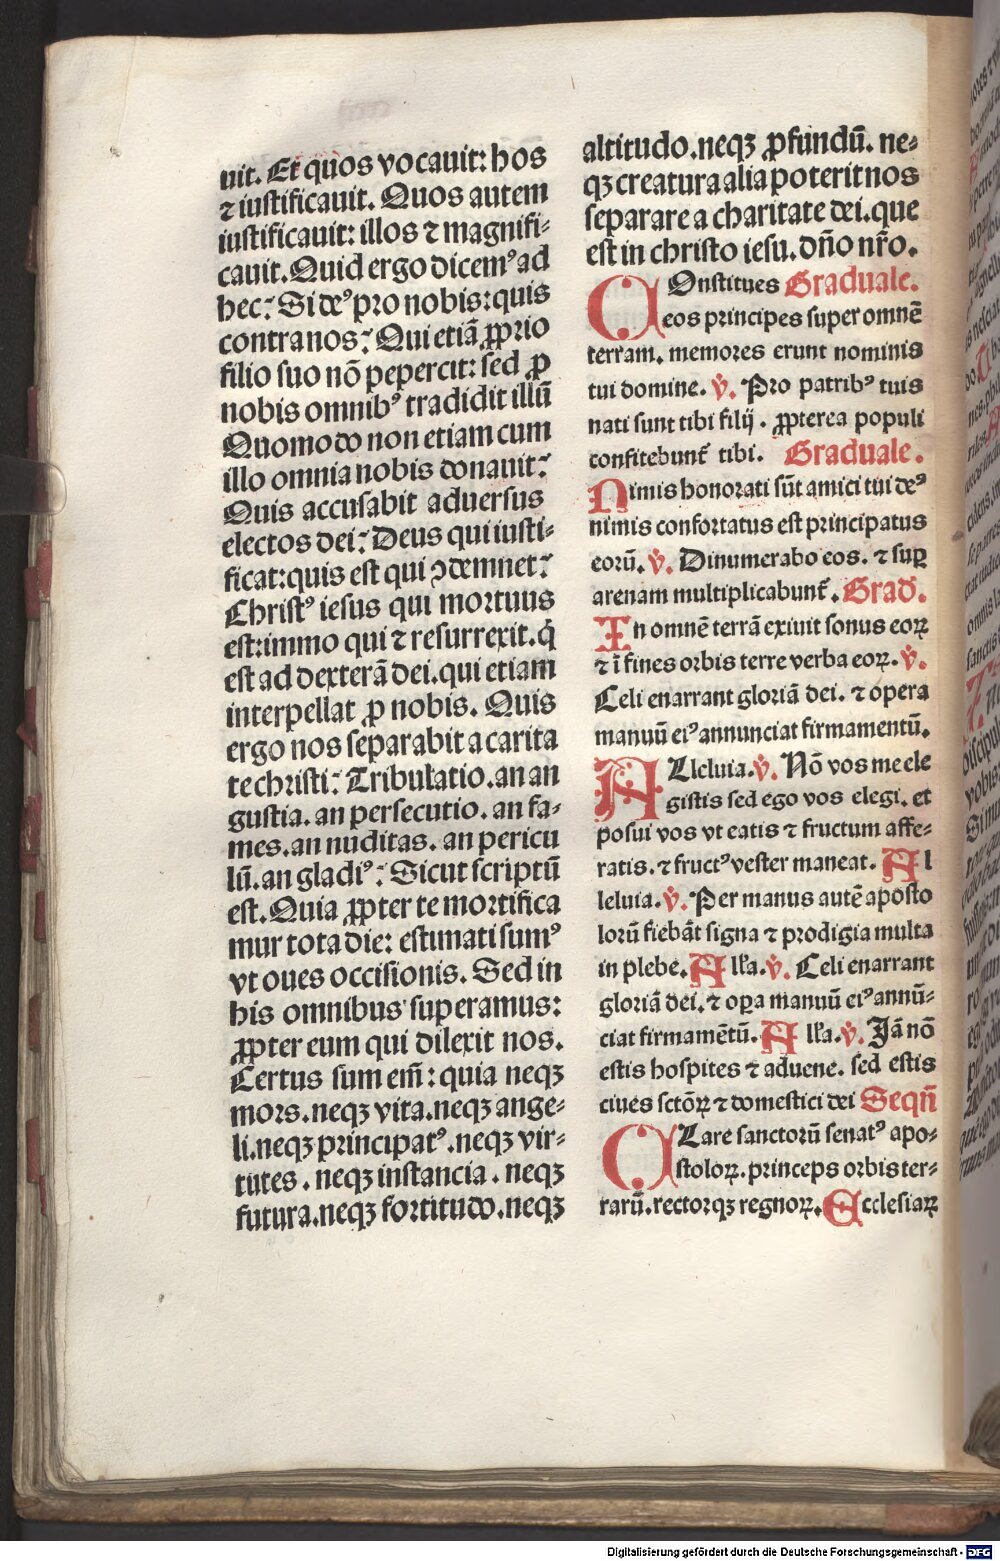 uit. Et quos vocauit: hos
⁊ iustificauit. Quos autem
iustificauit: illos ⁊ magnifi⸗
cauit. Quid ergo dicemꝰ ad
hec: Si deꝰ pro nobis: quis
contra nos: Qui etiā ꝓprio
filio suo nō pepercit: sed ꝓ
nobis omnibꝰ tradidit illū
Quomodo non etiam cum
illo omnia nobis donauit:
Quis accusabit aduersus
electos dei: Deus qui iusti⸗
ficat: quis est qui ↄdemnet:
Christꝰ iesus qui mortuus
est: immo qui ⁊ resurrexit. q̄
est ad dexterā dei. qui etiam
interpellat ꝓ nobis. Quis
ergo nos separabit a carita
te christi: Tribulatio. an an
gustia. an persecutio. an fa⸗
mes. an nuditas. an pericu
lū. an gladiꝰ: Sicut scriptū
est. Quia ꝓpter te mortifica
mur tota die: estimati sumꝰ
vt oues occisionis. Sed in
his omnibus superamus:
ꝓpter eum qui dilexit nos.
Certus sum em̄: quia neqꝫ
mors. neqꝫ vita. neqꝫ ange⸗
li. neqꝫ principatꝰ. neqꝫ vir⸗
tutes. neqꝫ instancia. neqꝫ
futura. neqꝫ fortitudo. neqꝫ
altitudo. neqꝫ ꝓfundū. ne⸗
qꝫ creatura alia poterit nos
separare a charitate dei. que
est in christo iesu. dn̄o nr̄o.
COnstitues Graduale.
eos principes super omnē
terram. memores erunt nominis
tui domine. v̄. Pro patribꝰ tuis
nati sunt tibi filij. ꝓpterea populi
confitebunt̄ tibi. Graduale.
Nimis honorati sūt amici tui deꝰ
nimis confortatus est principatus
eorū. v̄. Dinumerabo eos. ⁊ suꝑ
arenam multiplicabunt̄. Grad̄.
In omnē terrā exiuit sonus eoꝝ
⁊ ī fines orbis terre verba eoꝝ. v̄.
Celi enarrant gloriā dei. ⁊ opera
manuū eiꝰ annunciat firmamentū.
ALleluia. v̄. Nō vos me ele
gistis sed ego vos elegi. et
posui vos vt eatis ⁊ fructum affe⸗
ratis. ⁊ fructꝰ vester maneat. Al
leluia. v̄. Per manus autē aposto
lorū fiebāt signa ⁊ prodigia multa
in plebe. All'a. v̄. Celi enarrant
gloriā dei. ⁊ oꝑa manuū eiꝰ annū⸗
ciat firmamētū. All'a. v̄. Jā nō
estis hospites ⁊ aduene. sed estis
ciues sctōꝝ ⁊ domestici dei Seqn̄
CLare sanctorū senatꝰ apo⸗
stoloꝝ. princeps orbis ter⸗
rarū. rectorqꝫ regnoꝝ. Ecclesiaꝝ
Digitalisierung gefördert durch die Deutsche Forschungsgemeinschaft - DFG